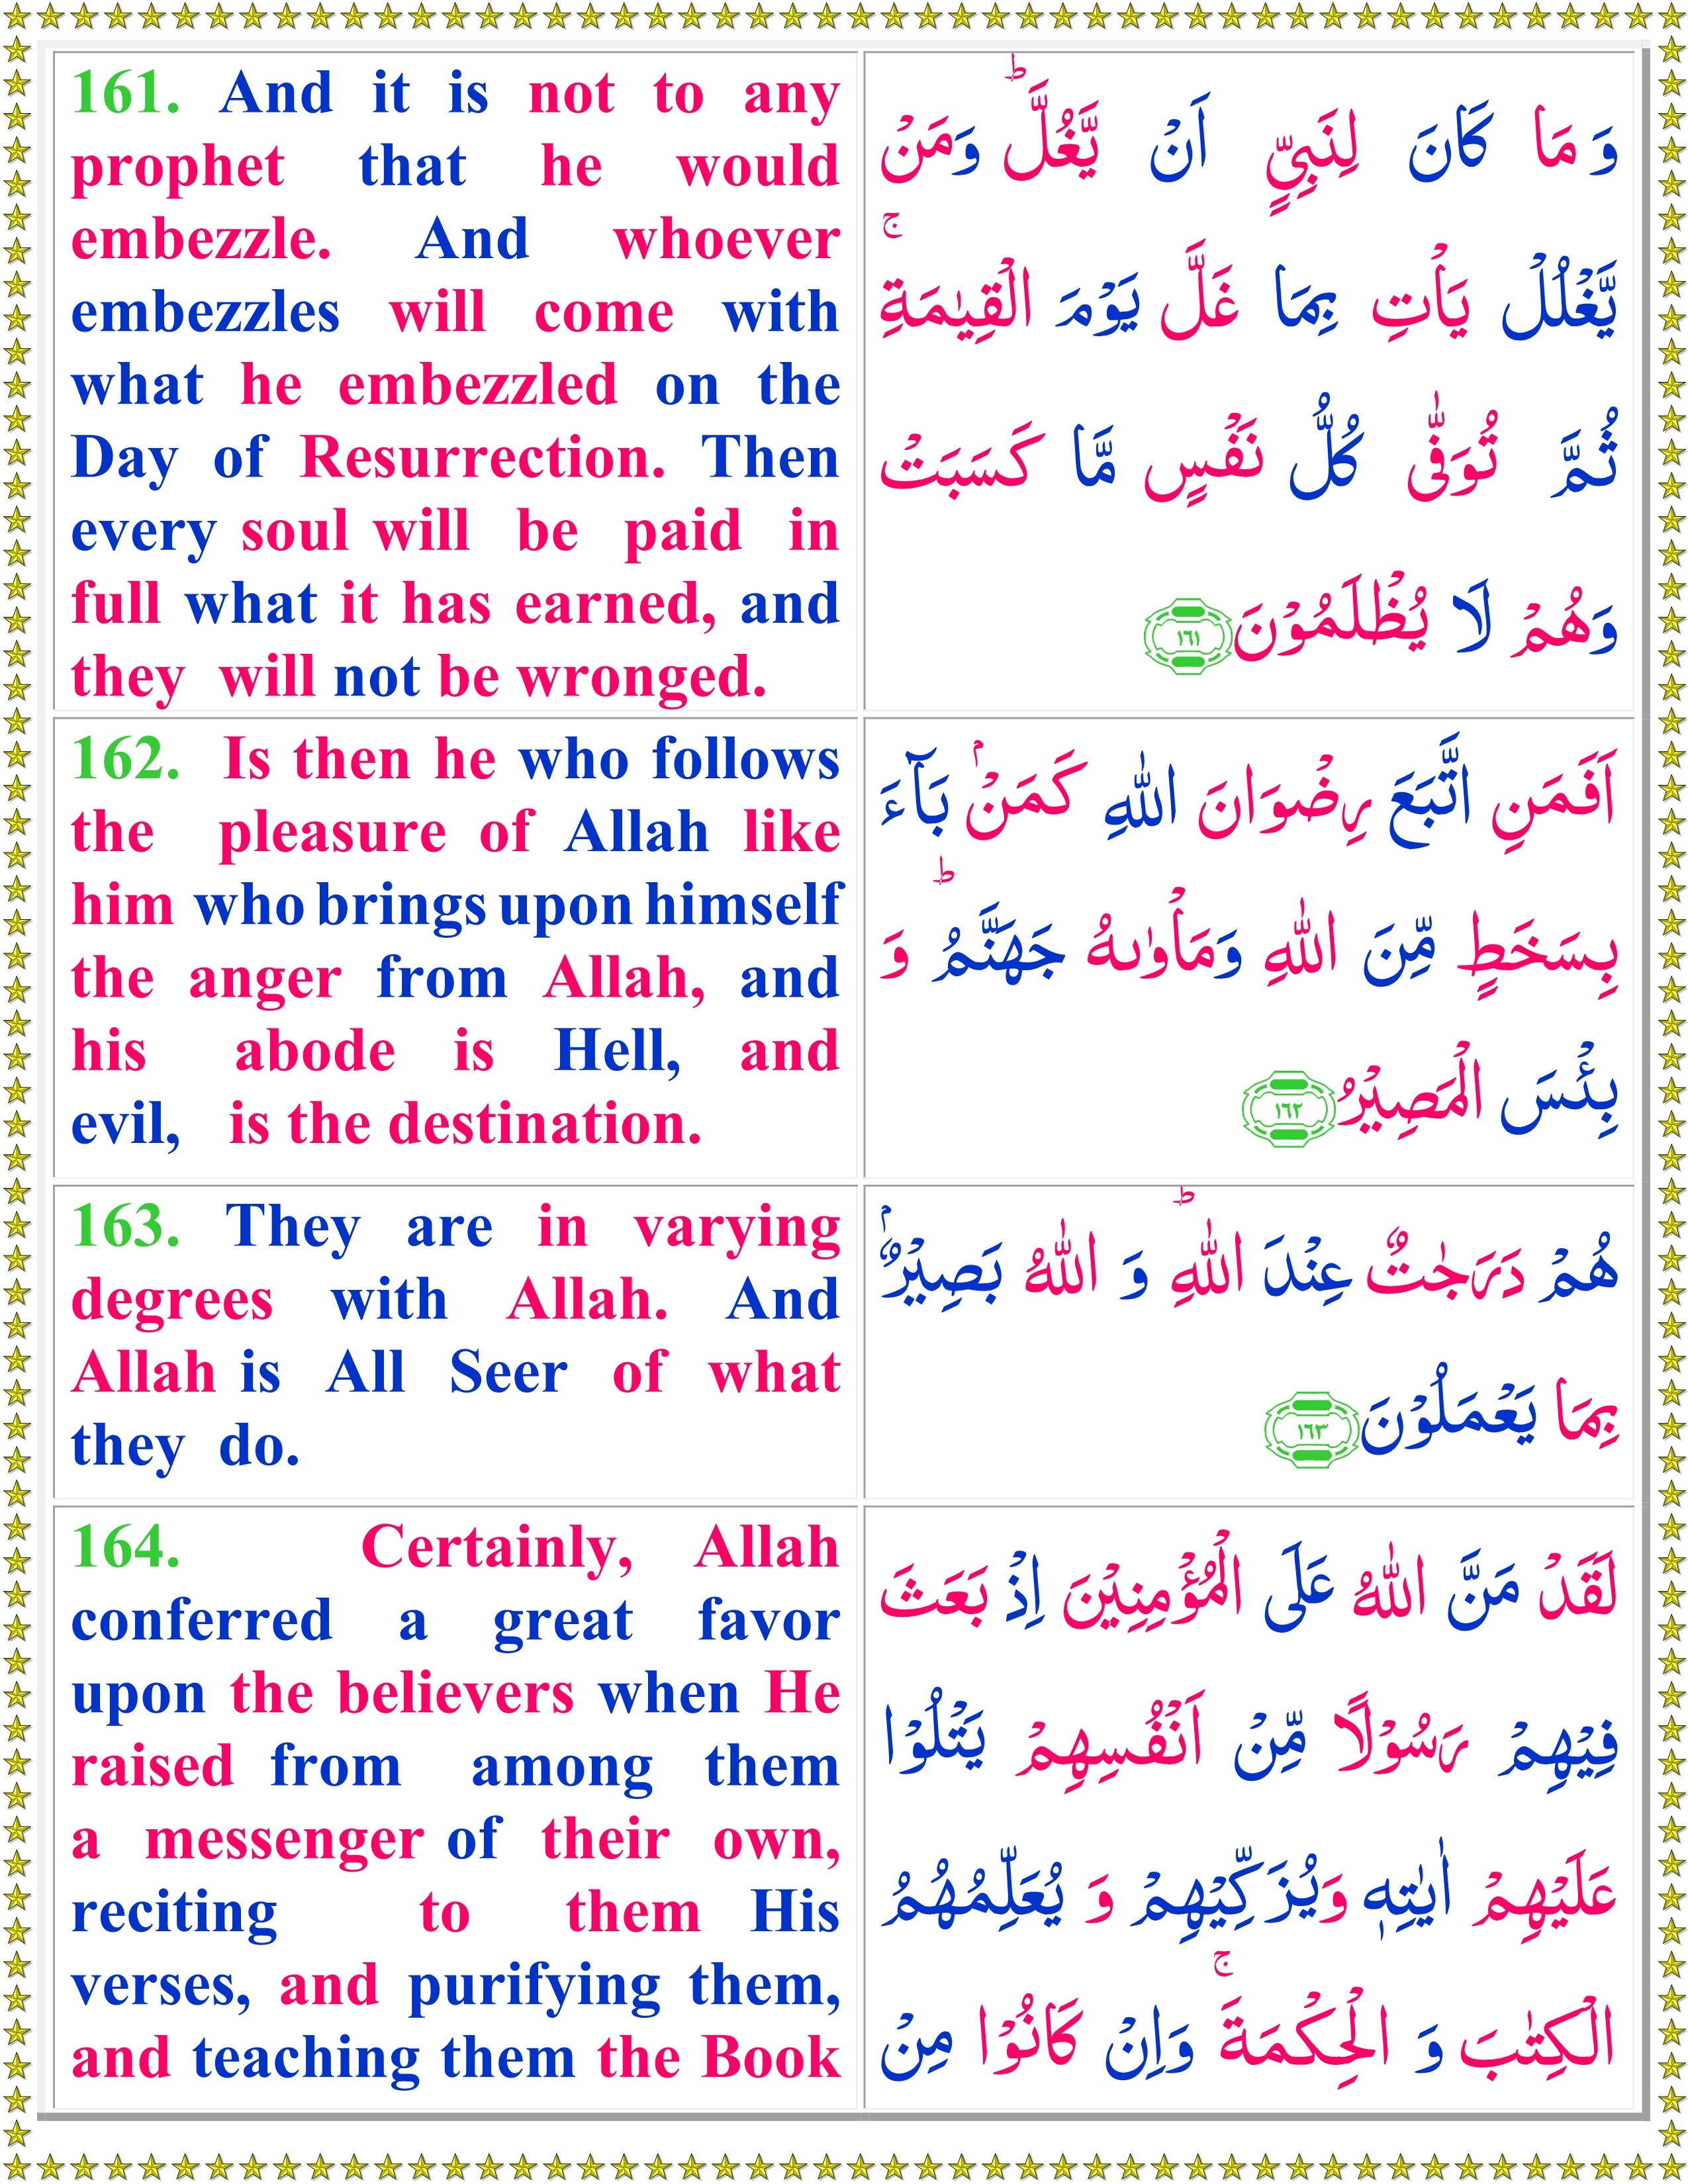 161. And it is not to any
prophet that he would
embezzle. And whoever
embezzles will come with
what he embezzled on the
Day of Resurrection. Then
every soul will be paid in
full what it has earned, and
they will not be wronged.
وَ مَا كَانَ لِنَبِيٍّ اَنْ يَّغُلَّ ؕ وَمَنْ
يَّغْلُلْ يَاْتِ بِمَا غَلَّ يَوْمَ الْقِيٰمَةِ ۚ
ثُمَّ تُوَفّٰى كُلُّ نَفْسٍ مَّا كَسَبَتْ
وَهُمْ لَا يُظْلَمُوْنَ ۝١٦١
162. Is then he who follows
the pleasure of Allah like
him who brings upon himself
the anger from Allah, and
his abode is Hell, and
evil, is the destination.
اَفَمَنِ اتَّبَعَ رِضْوَانَ اللّٰهِ كَمَنْۢ بَآءَ
بِسَخَطٍ مِّنَ اللّٰهِ وَمَاْوٰىهُ جَهَنَّمُ ؕ وَ
بِئْسَ الْمَصِيْرُ ۝١٦٢
163. They are in varying
degrees with Allah. And
Allah is All Seer of what
they do.
هُمْ دَرَجٰتٌ عِنْدَ اللّٰهِ ؕ وَ اللّٰهُ بَصِيْرٌۢ
بِمَا يَعْمَلُوْنَ ۝١٦٣
164. Certainly, Allah
conferred a great favor
upon the believers when He
raised from among them
a messenger of their own,
reciting to them His
verses, and purifying them,
and teaching them the Book
لَقَدْ مَنَّ اللّٰهُ عَلَى الْمُؤْمِنِيْنَ اِذْ بَعَثَ
فِيْهِمْ رَسُوْلًا مِّنْ اَنْفُسِهِمْ يَتْلُوْا
عَلَيْهِمْ اٰيٰتِهٖ وَيُزَكِّيْهِمْ وَ يُعَلِّمُهُمُ
الْكِتٰبَ وَ الْحِكْمَةَ ۚ وَاِنْ كَانُوْا مِنْ